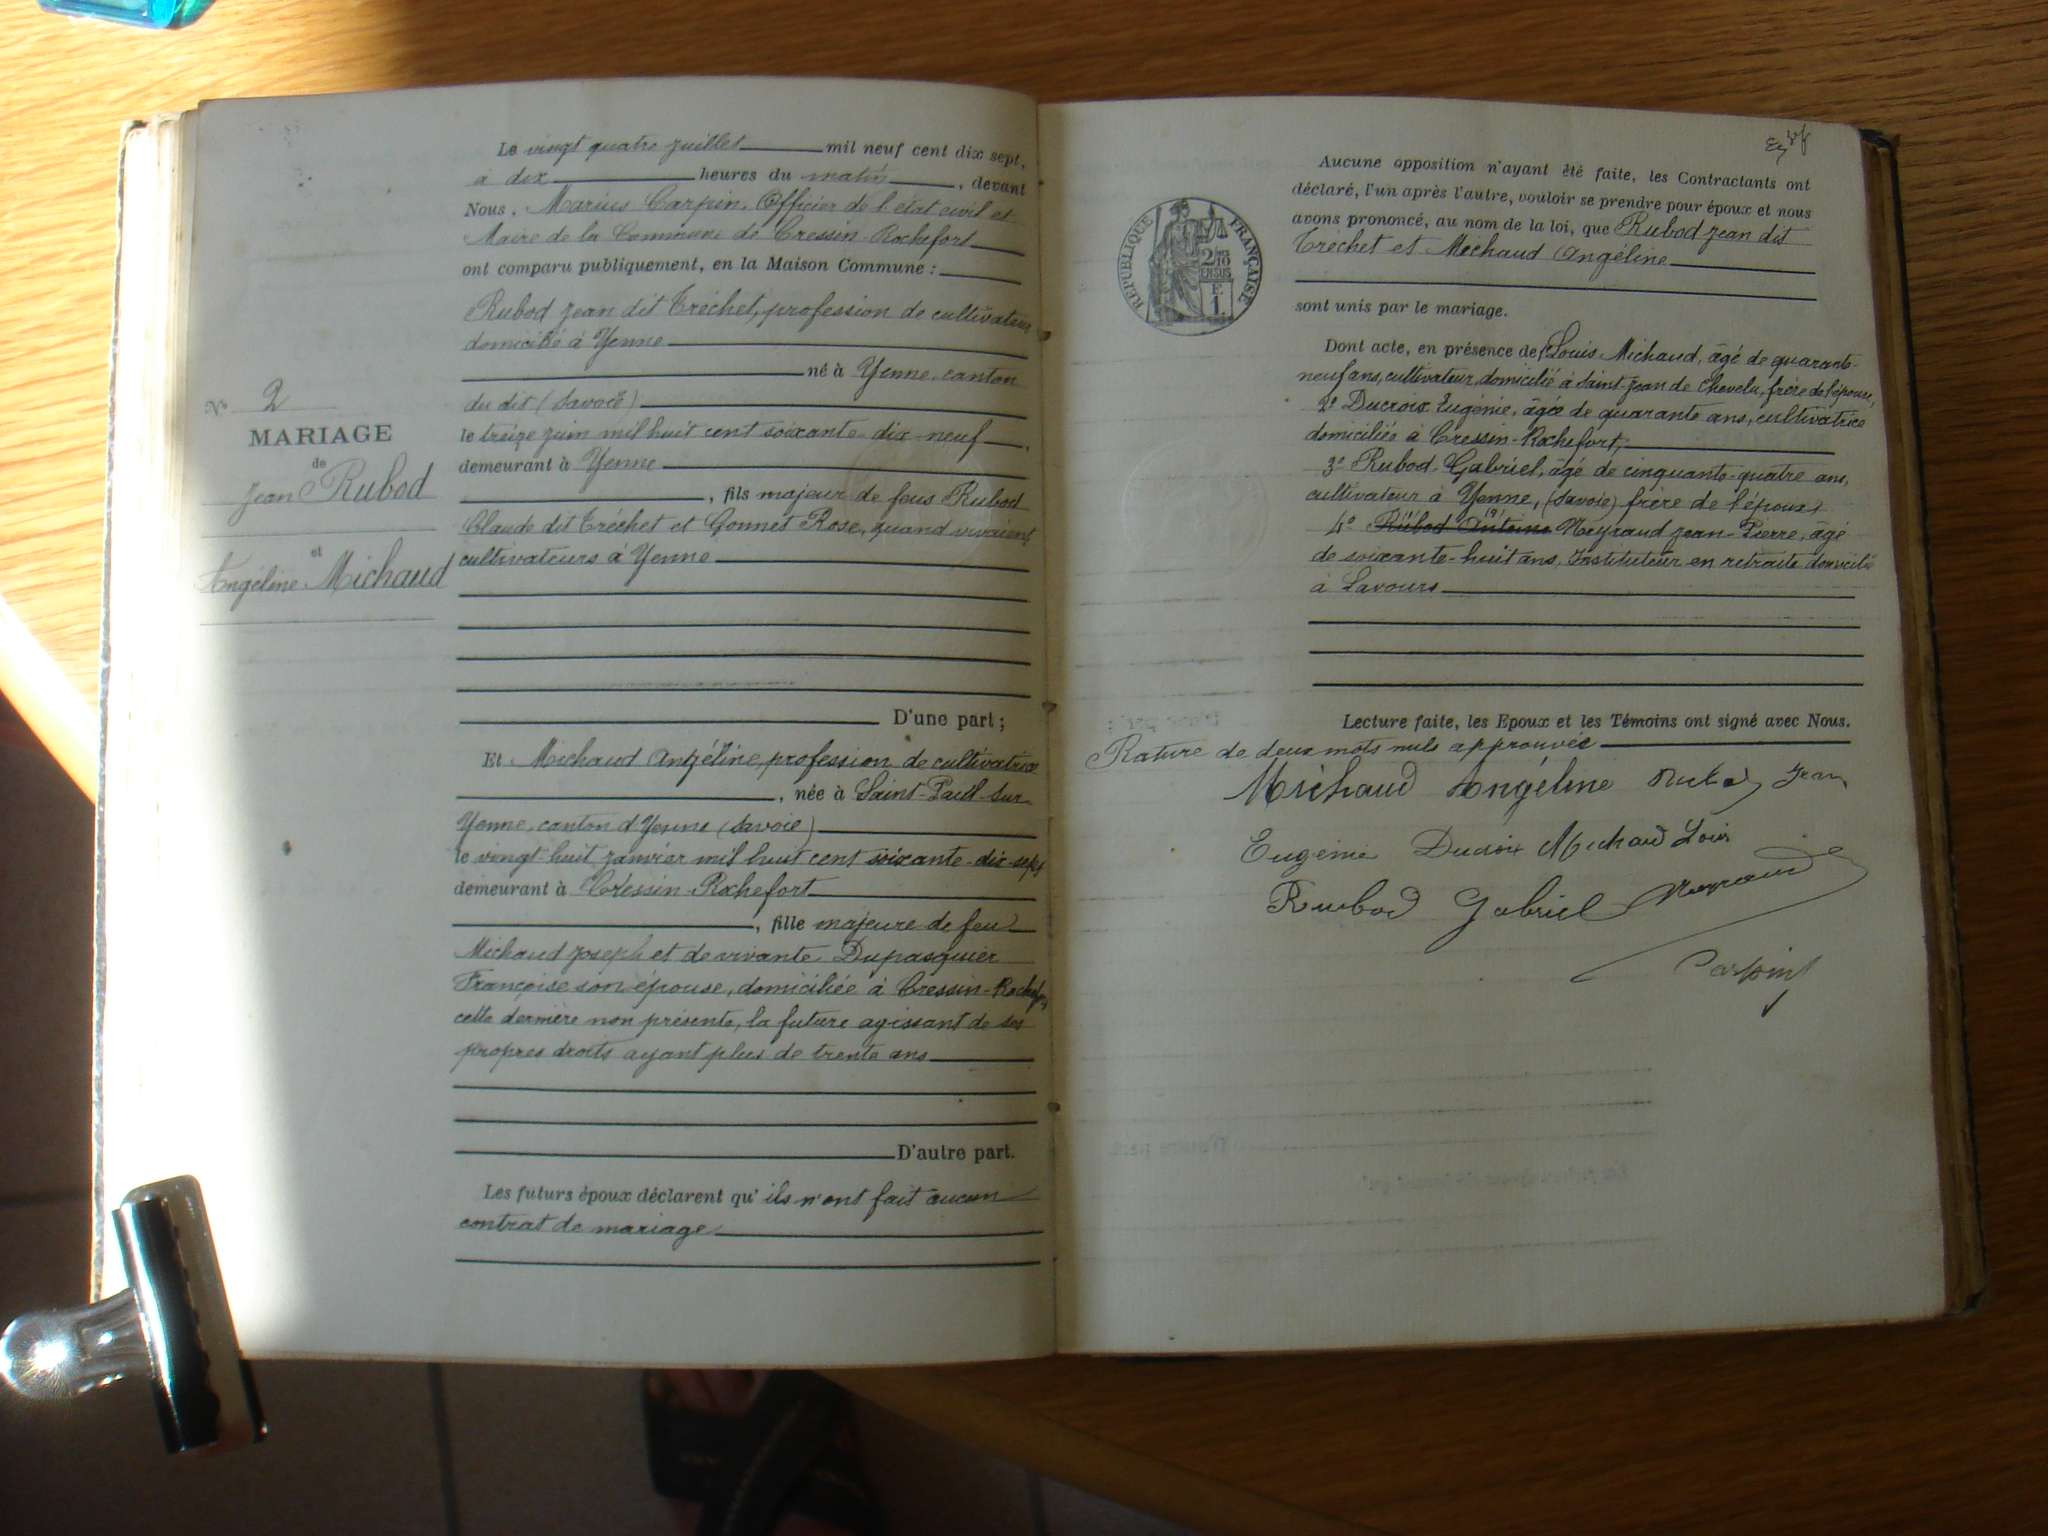 Le vingt quatre juillet mil neuf cent dix sept,
à dix heures du matin, devant
Nous, Marius Carpin, Officier de l'état civil et
Maire de la Commune de Cressin-Rochefort
ont comparu publiquement, en la Maison Commune :
Rubod Jean dit Tréchet, profession de cultivateur
domicilié à Yenne
né à Yenne, canton
du dit (Savoie)
le treize juin mil huit cent soixante-dix-neuf,
demeurant à Yenne
, fils majeur de feus Rubod
Claude dit Tréchet et Gonnet Rose, quand vivaient
cultivateurs à Yenne
D'une part ;
Et Michaud Angéline, profession de cultivatrice
, née à Saint-Paul-sur
Yenne, canton d'Yenne (Savoie)
le vingt-huit janvier mil huit cent soixante-dix-sept
demeurant à Cressin-Rochefort
, fille majeure de feu
Michaud Joseph et de vivante Dupasquier
Françoise son épouse, domiciliée à Cressin-Rochefort,
cette dernière non présente, la future agissant de ses
propres droits ayant plus de trente ans
D'autre part.
Les futurs époux déclarent qu'ils n'ont fait aucun
contrat de mariage
No 2
MARIAGE
de
Jean Rubod
et
Angéline Michaud
Aucune opposition n'ayant été faite, les Contractants ont
déclaré, l'un après l'autre, vouloir se prendre pour époux et nous
avons prononcé, au nom de la loi, que Rubod Jean dit
Tréchet et Michaud Angéline
sont unis par le mariage.
RÉPUBLIQUE FRANÇAISE
2
10
EN SUS
F.
1.
Dont acte, en présence de Louis Michaud, âgé de quarante-
neuf ans, cultivateur, domicilié à Saint Jean de Chevelu, frère de l'épouse,
2º Ducroix Eugénie, âgée de quarante ans, cultivatrice
domiciliée à Cressin-Rochefort,
3º Rubod Gabriel, âgé de cinquante-quatre ans,
cultivateur à Yenne, (Savoie) frère de l'époux,
4º Rubod Antoine Neyraud Jean-Pierre, âgé
de soixante-huit ans, Instituteur en retraite domicilié
à Lavours
Lecture faite, les Epoux et les Témoins ont signé avec Nous.
Rature de deux mots nuls approuvée
Michaud Angéline Rubod Jean
Eugénie Ducroix Michaud Louis
Rubod Gabriel Neyraud
Carpin